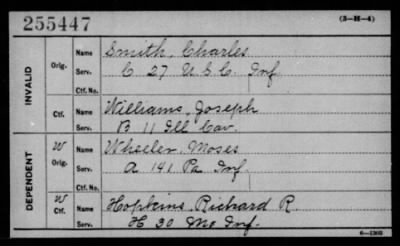 255447
(3-H-4)
INVALID
Orig.
Name Smith, Charles
Serv. C 27 U S C. Inf
Ctf. No.
Ctf.
Name Williams, Joseph
Serv. B 11 Ill Cav.
DEPENDENT
W
Orig.
Name Wheeler, Moses
Serv. A 141 Pa Inf.
W
Ctf.
Name Hopkins, Richard R.
Serv. H 30 Mo Inf.